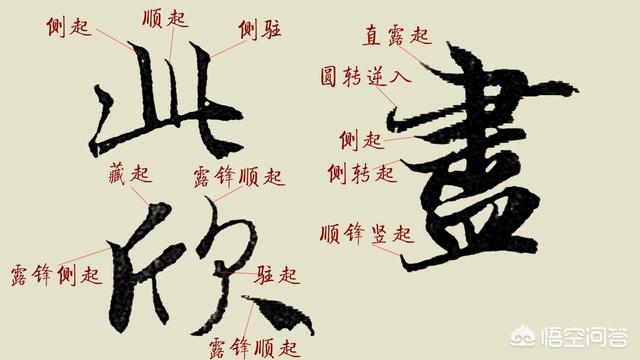 侧起
顺起
侧驻
此
藏起
露锋顺起
欣
露锋侧起
驻起
露锋顺起
直露起
圆转逆入
盡
侧起
侧转起
顺锋竖起
悟空问答